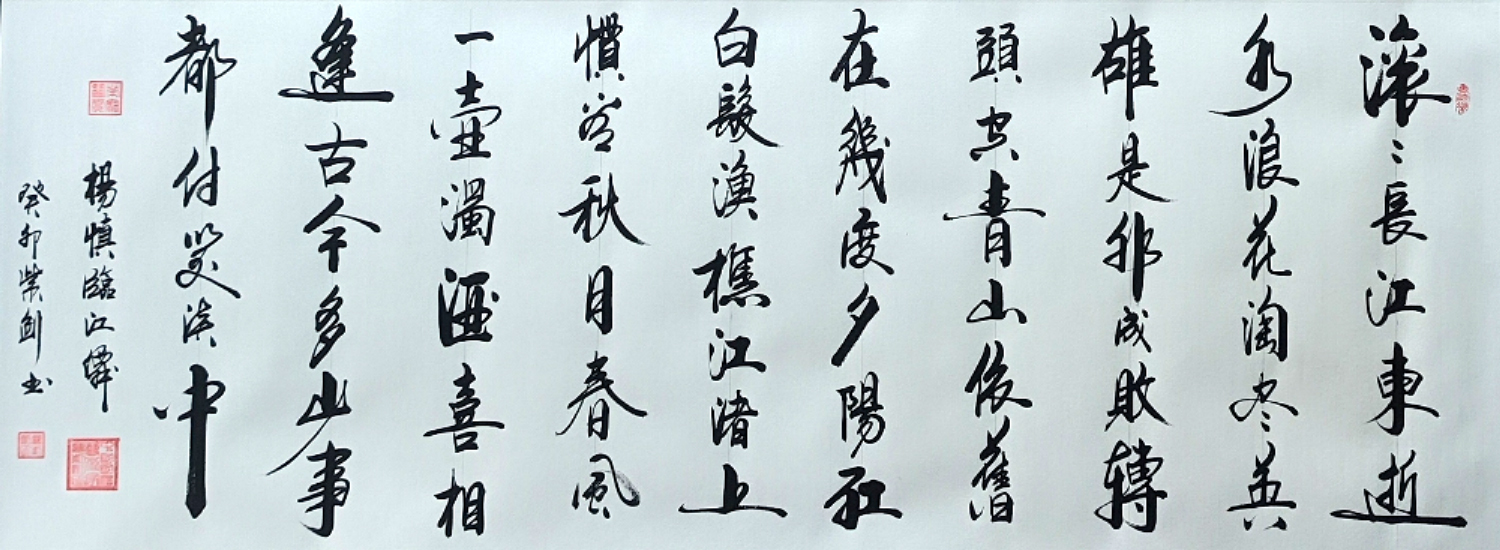 滾〻長江東逝
水浪花淘尽英
雄是非成敗轉
頭空青山依舊
在幾度夕陽紅
白髮漁樵江渚上
慣看秋月春風
一壷濁酒喜相
逢古今多少事
都付笑谈中
楊慎臨江僊
癸卯紫劍书